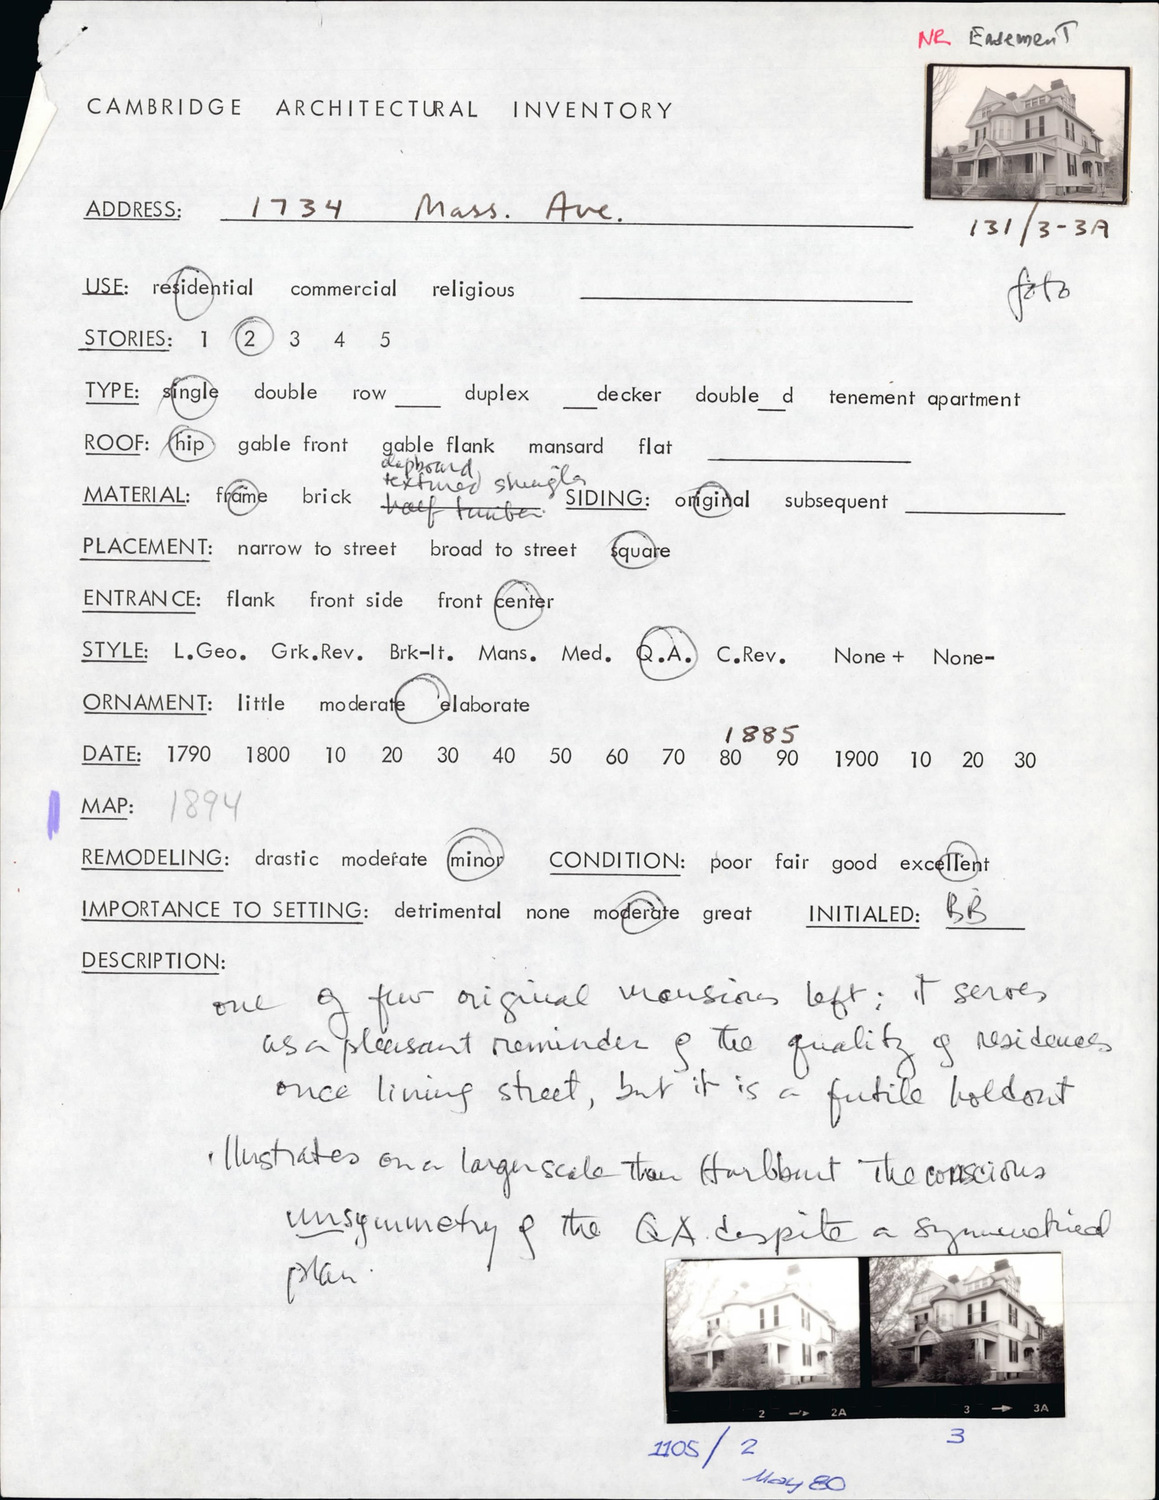 NR Easement
CAMBRIDGE ARCHITECTURAL INVENTORY
ADDRESS: 1734 Mass. Ave.
131/3-3A
foto
USE: residential commercial religious
STORIES: 1 2 3 4 5
TYPE: single double row ___ duplex ___decker double__d tenement apartment
ROOF: hip gable front gable flank mansard flat
clapboard,
textured shingles
MATERIAL: frame brick half timber SIDING: original subsequent
PLACEMENT: narrow to street broad to street square
ENTRANCE: flank front side front center
STYLE: L.Geo. Grk.Rev. Brk-It. Mans. Med. Q.A. C.Rev. None+ None-
ORNAMENT: little moderate elaborate
1885
DATE: 1790 1800 10 20 30 40 50 60 70 80 90 1900 10 20 30
MAP: 1894
REMODELING: drastic moderate minor CONDITION: poor fair good excellent
IMPORTANCE TO SETTING: detrimental none moderate great INITIALED: BB
DESCRIPTION:
one of few original mansions left; it serves
as a pleasant reminder of the quality of residences
once lining street, but it is a futile holdout
illustrates on a larger scale than the conscious
unsymmetry of the QA despite a symmetrical
plan.
2 → 2A 3 → 3A
1105/2 3
May 80